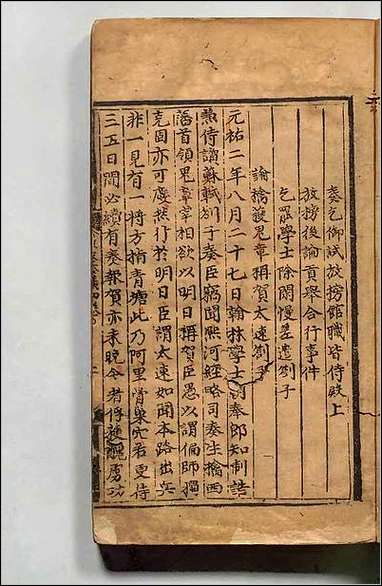 奏乞御試放榜館職皆侍殿上
放榜後論貢舉合行事件
乞罷學士除閑慢差遣劄子
論擒獲鬼章稱賀太速劄子
元祐二年八月二十七日翰林學士朝奉郎知制誥
兼侍讀蘇軾劄子奏臣竊聞熙河經略司奏生擒西
蕃首領鬼章宰相欲以明日稱賀臣愚以謂偏師獨
克固亦可慶然行於明日臣謂太速如聞本路出兵
非一見有一將方指青塘此乃阿里骨巢穴若更待
三五日間必續有奏報賀亦未晚今者俘獲醜虜功